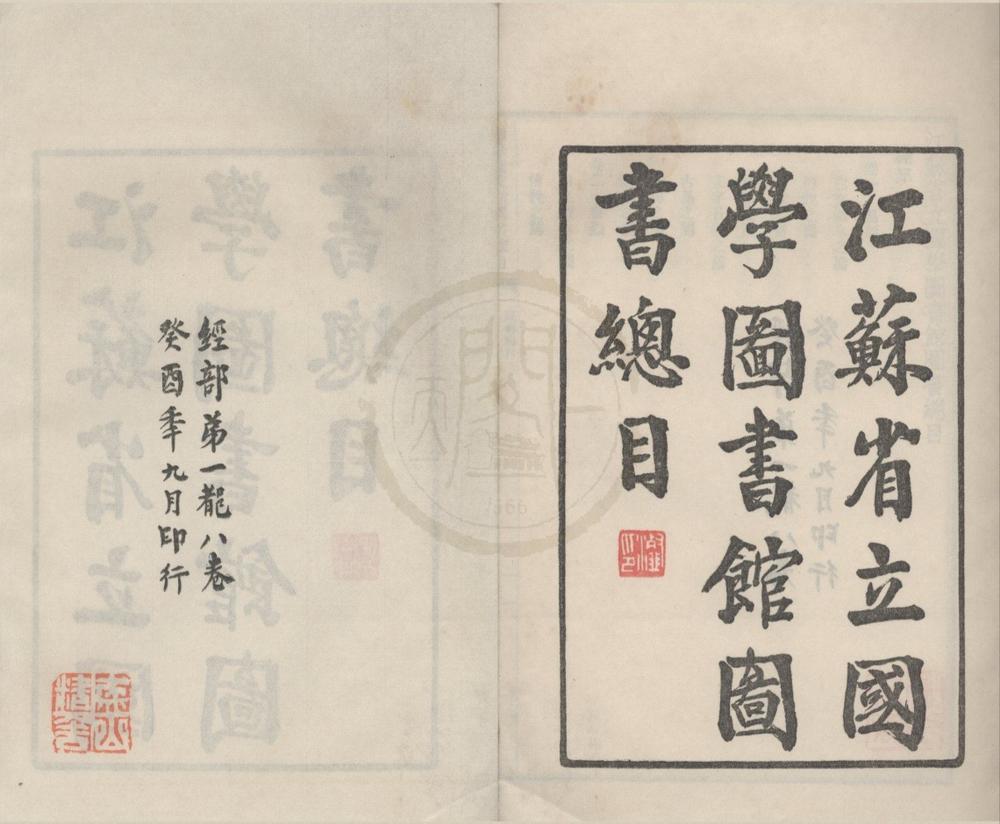 江蘇省立國
學圖書館圖
書總目
經部第一
八卷
癸酉年九月印行